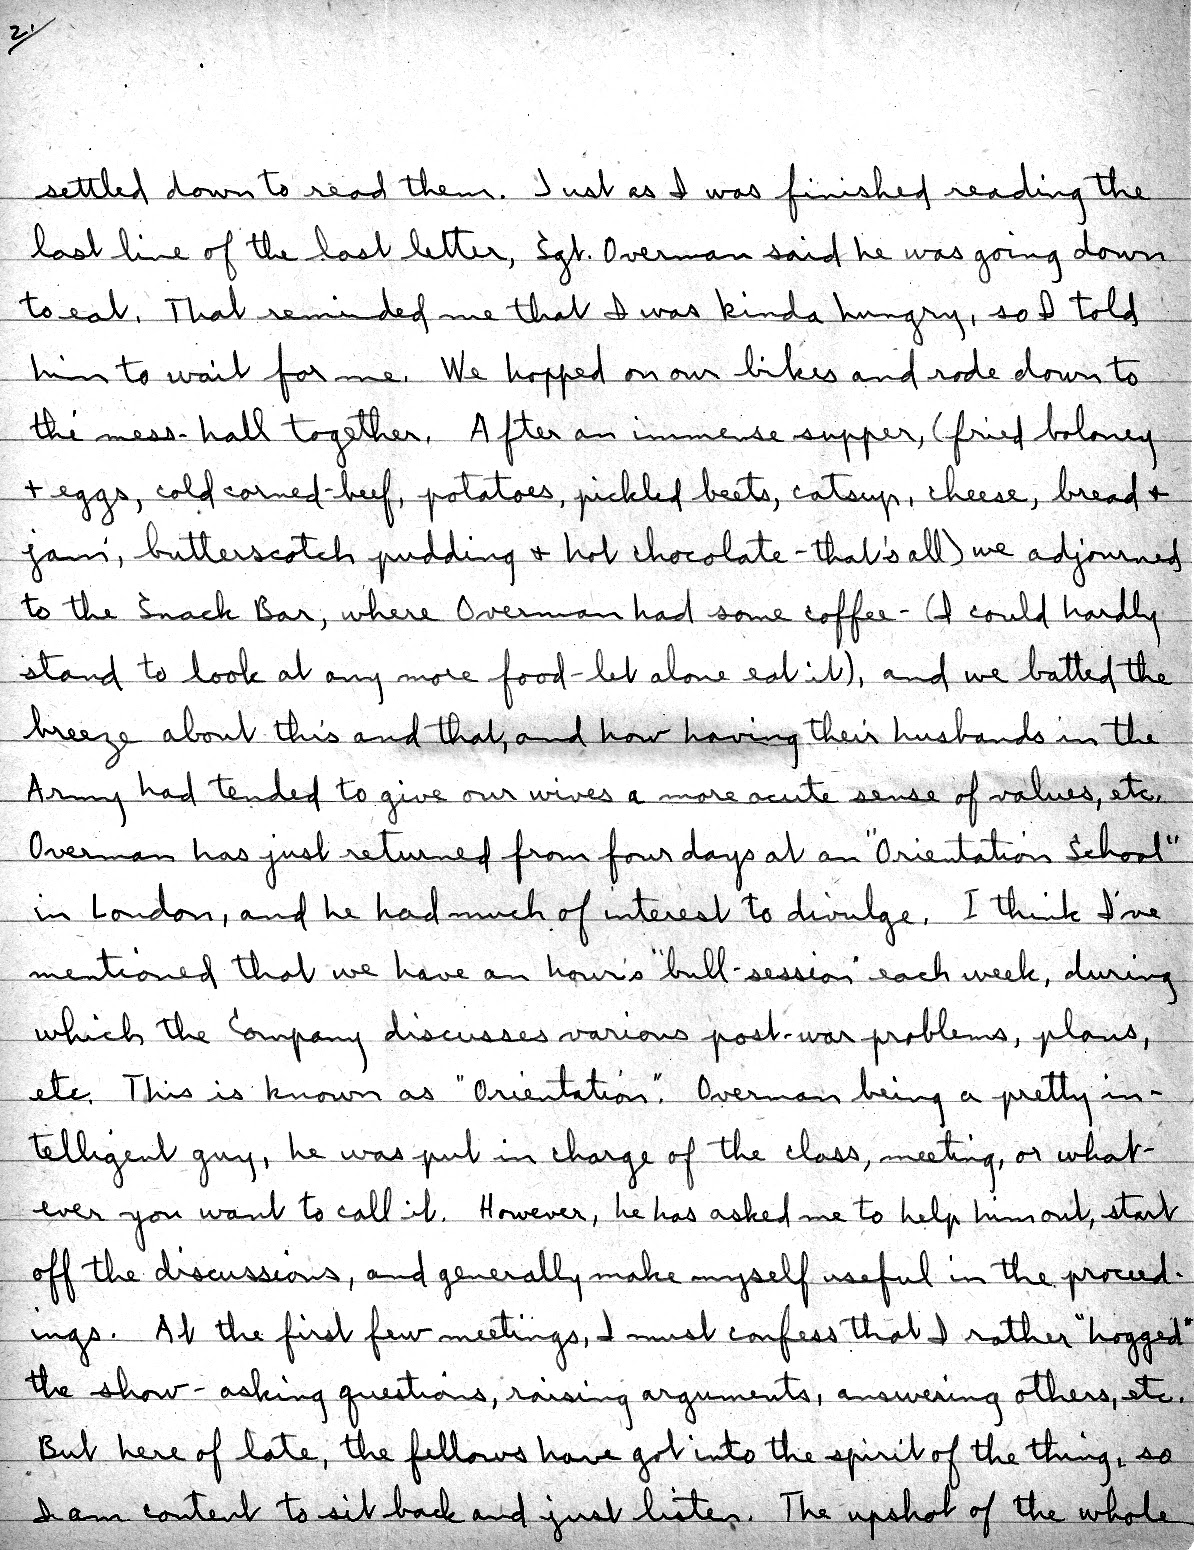 2.
settled down to read them. Just as I was finished reading the
last line of the last letter, Sgt. Overman said he was going down
to eat. That reminded me that I was kinda hungry, so I told
him to wait for me. We hopped on our bikes and rode down to
the mess-hall together. After an immense supper, (fried boloney
+ eggs, cold corned-beef, potatoes, pickled beets, catsup, cheese, bread +
jam, butterscotch pudding + hot chocolate - that's all) we adjourned
to the Snack Bar, where Overman had some coffee - (I could hardly
stand to look at any more food - let alone eat it), and we batted the
breeze about this and that, and how having their husbands in the
Army had tended to give our wives a more acute sense of values, etc.
Overman has just returned from four days at an "Orientation School"
in London, and he had much of interest to divulge. I think I've
mentioned that we have an hour's "bull-session" each week, during
which the Company discusses various post-war problems, plans,
etc. This is known as "Orientation". Overman being a pretty in-
telligent guy, he was put in charge of the class, meeting, or what-
ever you want to call it. However, he has asked me to help him out, start
off the discussions, and generally make myself useful in the proceed-
ings. At the first few meetings, I must confess that I rather "hogged"
the show - asking questions, raising arguments, answering others, etc.
But here of late, the fellows have got into the spirit of the thing, so
I am content to sit back and just listen. The upshot of the whole